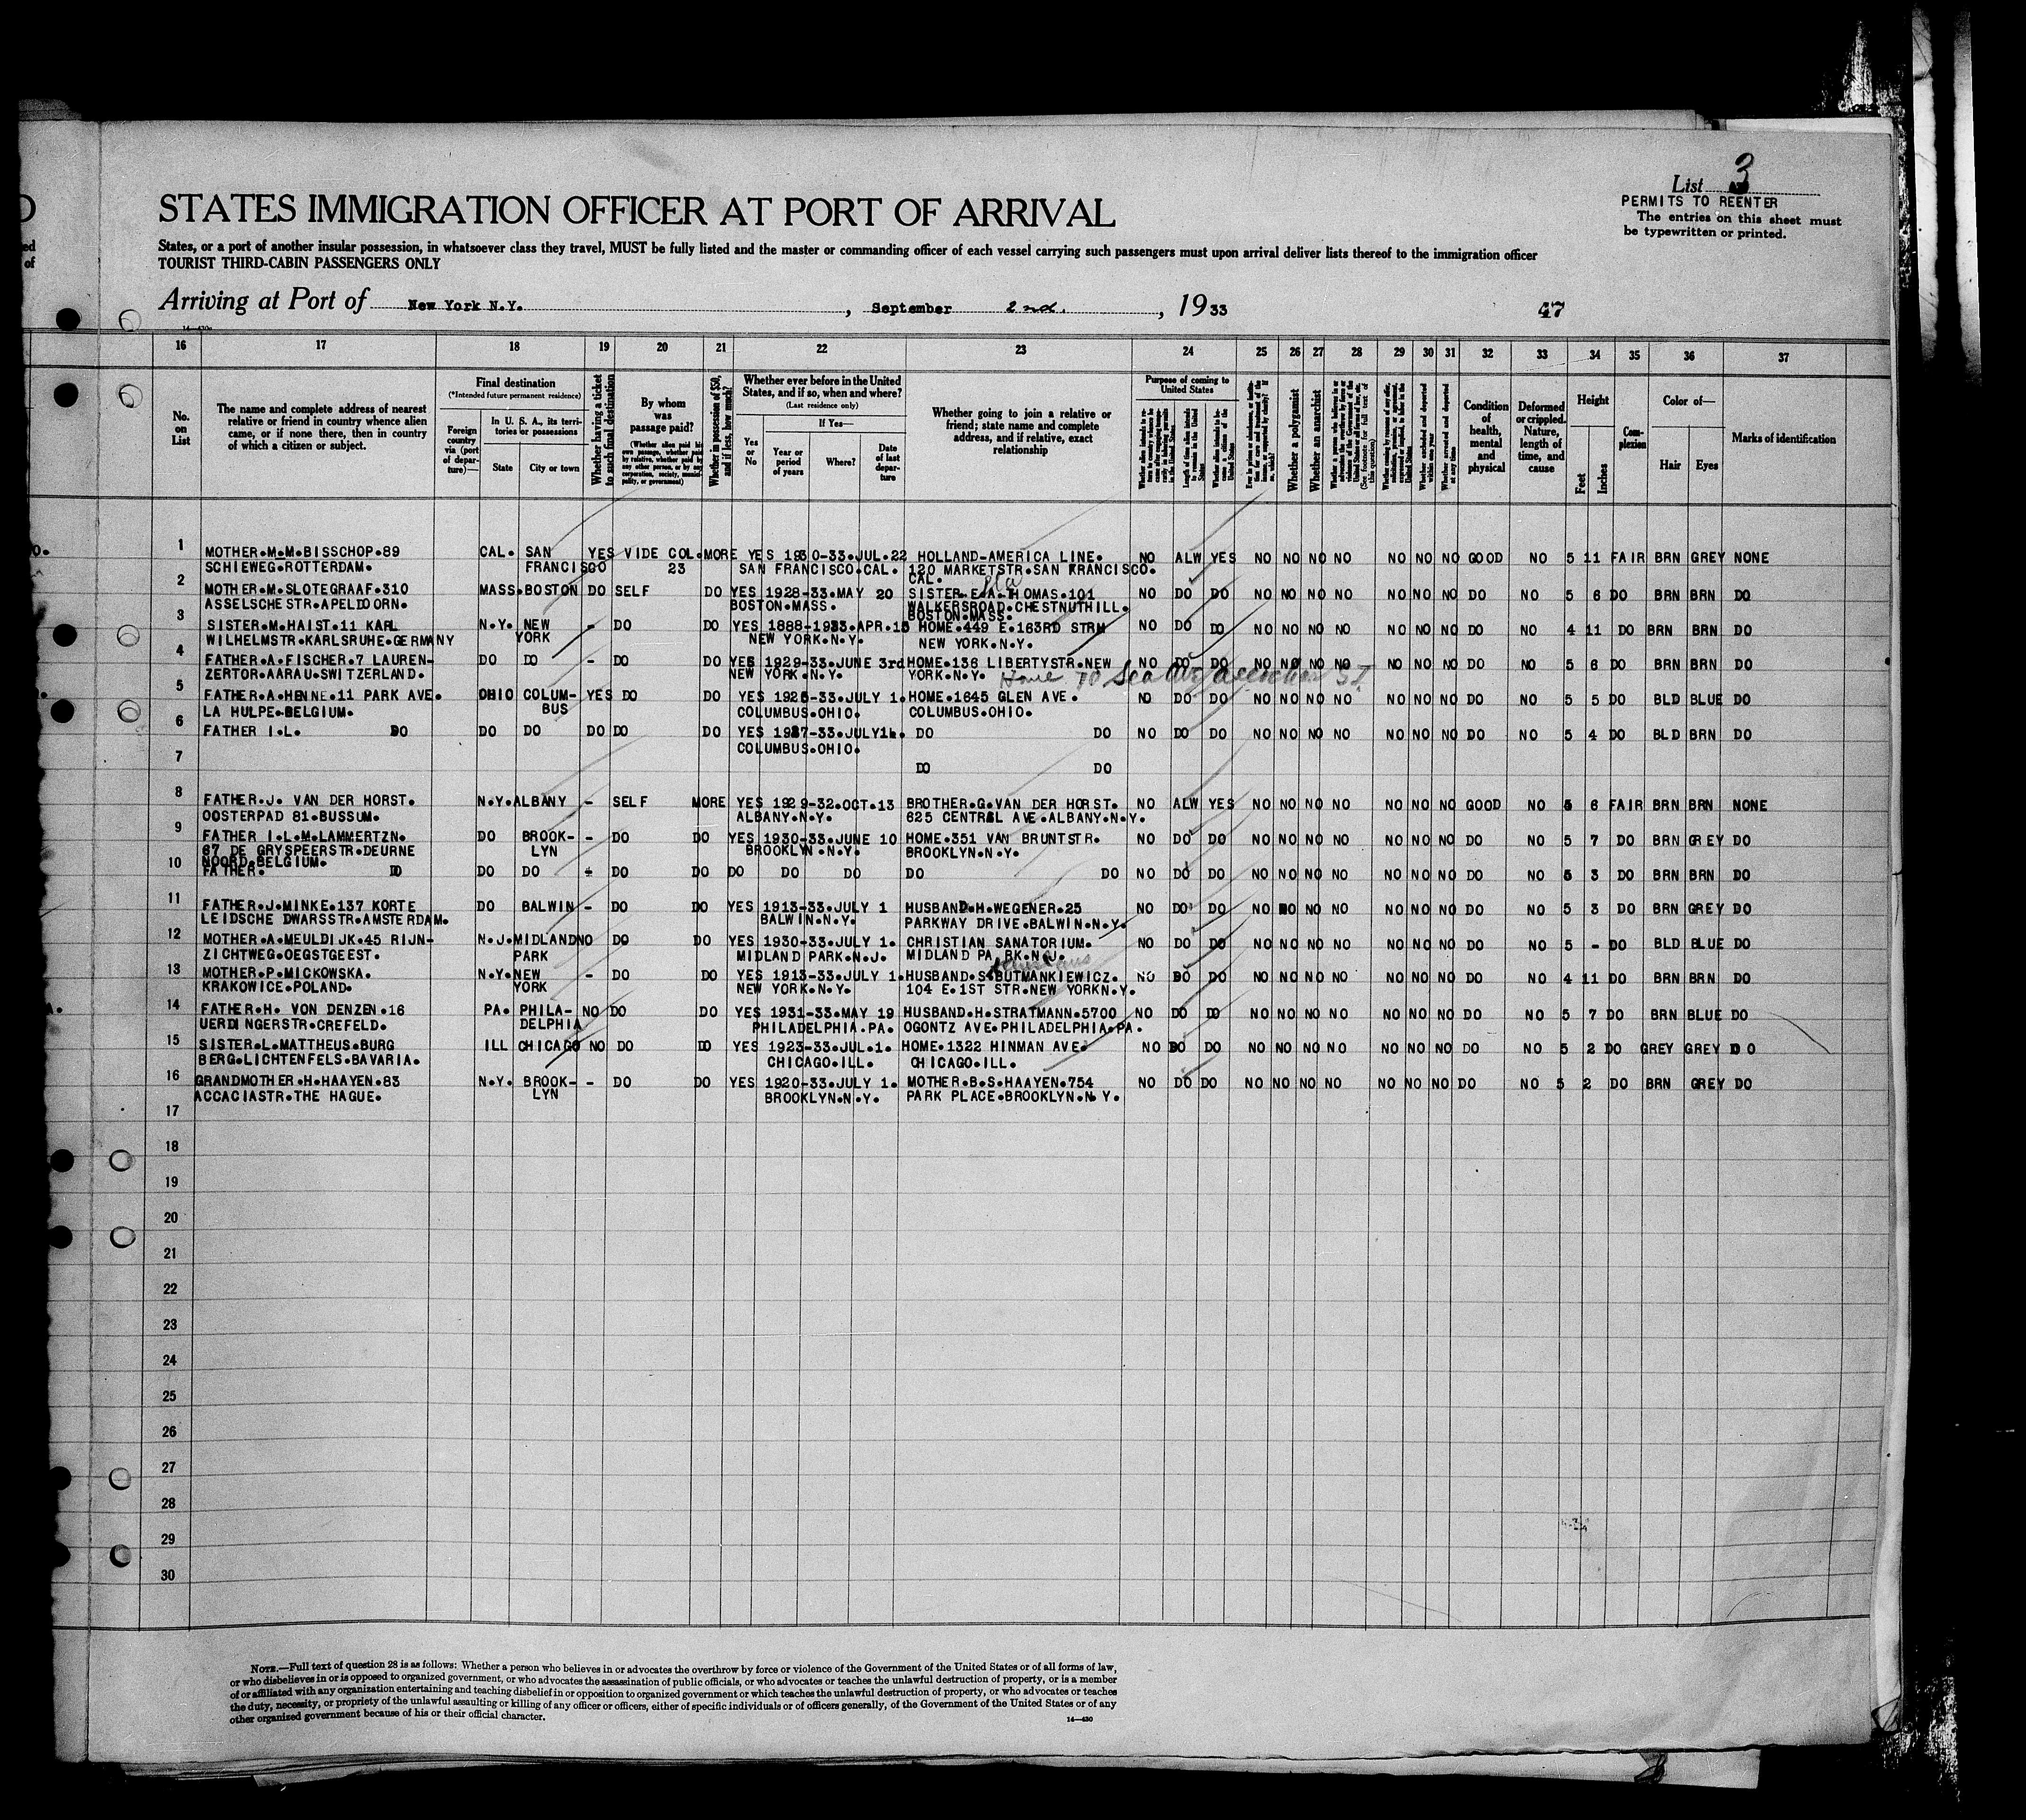 List 3
PERMITS TO REENTER
The entries on this sheet must
be typewritten or printed.
STATES IMMIGRATION OFFICER AT PORT OF ARRIVAL
States, or a port of another insular possession, in whatsoever class they travel, MUST be fully listed and the master or commanding officer of each vessel carrying such passengers must upon arrival deliver lists thereof to the immigration officer
TOURIST THIRD-CABIN PASSENGERS ONLY
Arriving at Port of New York N.Y. , September 2nd. , 1933 47
16 17 18 19 20 21 22 23 24 25 26 27 28 29 30 31 32 33 34 35 36 37
No. on List
The name and complete address of nearest relative or friend in country whence alien came, or if none there, then in country of which a citizen or subject.
Final destination
(*Intended future permanent residence)
Foreign country via (port of departure)—
In U. S. A., its territories or possessions
State City or town
Whether having a ticket to such final destination
By whom was passage paid?
(Whether alien paid his own passage, whether paid by relative, whether paid by any other person, or by any corporation, society, municipality, or government)
Whether in possession of $50, and if less, how much?
Whether ever before in the United States, and if so, when and where?
(Last residence only)
Yes or No
If Yes—
Year or period of years Where? Date of last departure
Whether going to join a relative or friend; state name and complete address, and if relative, exact relationship
Purpose of coming to United States
Length of time alien intends to remain in the United States
Whether alien intends to become a citizen of the United States
Whether a polygamist
Whether an anarchist
(See footnote for full text of this question)
Whether excluded and deported within one year
Whether arrested and deported at any time
Condition of health, mental and physical
Deformed or crippled. Nature, length of time, and cause
Height
Feet Inches
Complexion
Color of—
Hair Eyes
Marks of identification
1 MOTHER.M.M.BISSCHOP.89 CAL. SAN YES VIDE COL. MORE YES 1930-33.JUL.22 HOLLAND-AMERICA LINE. NO ALW YES NO NO NO NO NO NO NO GOOD NO 5 11 FAIR BRN GREY NONE
SCHIEWEG.ROTTERDAM. FRANCISCO 23 SAN FRANCISCO.CAL. 120 MARKETSTR.SAN FRANCISCO.
CAL.
2 MOTHER.M.SLOTEGRAAF.310 MASS.BOSTON DO SELF DO YES 1928-33.MAY 20 SISTER.E.A.THOMAS.101 NO DO DO NO NO NO NO NO NO NO DO NO 5 6 DO BRN BRN DO
ASSELSCHESTR.APELDOORN. BOSTON.MASS. WALKERSROAD.CHESTNUTHILL.
BOSTON.MASS.
3 SISTER.M.HAIST.11 KARL N.Y. NEW - DO DO YES 1888-1933.APR.15 HOME.449 E.163RD STRM NO DO DO NO NO NO NO NO NO NO DO NO 4 11 DO BRN BRN DO
WILHELMSTR.KARLSRUHE.GERMANY YORK NEW YORK.N.Y. NEW YORK.N.Y.
4 FATHER.A.FISCHER.7 LAUREN- DO DO - DO DO YES 1929-33.JUNE 3rd HOME.136 LIBERTYSTR.NEW NO DO DO NO NO NO NO NO NO NO DO NO 5 6 DO BRN BRN DO
ZERTOR.AARAU.SWITZERLAND. NEW YORK.N.Y. YORK.N.Y. Home to
5 FATHER.A.HENNE.11 PARK AVE. OHIO COLUM- YES DO DO YES 1926-33.JULY 1. HOME.1645 GLEN AVE. NO DO DO NO NO NO NO NO NO NO DO NO 5 5 DO BLD BLUE DO
LA HULPE.BELGIUM. BUS COLUMBUS.OHIO. COLUMBUS.OHIO.
6 FATHER I.L. DO DO DO DO DO DO YES 1927-33.JULY 1. DO DO NO DO DO NO NO NO NO NO NO NO DO NO 5 4 DO BLD BRN DO
COLUMBUS.OHIO.
7 DO DO
8 FATHER.J. VAN DER HORST. N.Y. ALBANY - SELF MORE YES 1929-32.OCT.13 BROTHER.G.VAN DER HORST. NO ALW YES NO NO NO NO NO NO NO GOOD NO 5 6 FAIR BRN BRN NONE
OOSTERPAD 81.BUSSUM. ALBANY.N.Y. 625 CENTRAL AVE.ALBANY.N.Y.
9 FATHER I.L.M.LAMMERTZN. DO BROOK- - DO DO YES 1930-33.JUNE 10 HOME.351 VAN BRUNTSTR. NO DO DO NO NO NO NO NO NO NO DO NO 5 7 DO BRN GREY DO
67 DE GRYSPEERSTR.DEURNE LYN BROOKLYN.N.Y. BROOKLYN.N.Y.
NOORD.BELGIUM.
10 FATHER. DO DO DO - DO DO DO DO DO DO DO NO DO DO NO NO NO NO NO NO NO DO NO 5 3 DO BRN BRN DO
11 FATHER.J.MINKE.137 KORTE DO BALWIN - DO DO YES 1913-33.JULY 1 HUSBAND.H.WEGENER.25 NO DO DO NO NO NO NO NO NO NO DO NO 5 3 DO BRN GREY DO
LEIDSCHE DWARSSTR.AMSTERDAM. BALWIN.N.Y. PARKWAY DRIVE.BALWIN.N.Y.
12 MOTHER.A.MEULDIJK.45 RIJN- N.J. MIDLAND NO DO DO YES 1930-33.JULY 1. CHRISTIAN SANATORIUM. NO DO DO NO NO NO NO NO NO NO DO NO 5 - DO BLD BLUE DO
ZICHTWEG.OEGSTGEEST. PARK MIDLAND PARK.N.J. MIDLAND PARK.N.J.
13 MOTHER.P.MICKOWSKA. N.Y. NEW - DO DO YES 1913-33.JULY 1. HUSBAND.S.BUTMANKIEWICZ. NO DO DO NO NO NO NO NO NO NO DO NO 4 11 DO BRN BRN DO
KRAKOWICE.POLAND. YORK NEW YORK.N.Y. 104 E.1ST STR.NEW YORK N.Y.
14 FATHER.H. VON DENZEN.16 PA. PHILA- NO DO DO YES 1931-33.MAY 19 HUSBAND.H.STRATMANN.5700 NO DO DO NO NO NO NO NO NO NO DO NO 5 7 DO BRN BLUE DO
UERDINGERSTR.CREFELD. DELPHIA PHILADELPHIA.PA. OGONTZ AVE.PHILADELPHIA.PA.
15 SISTER.L.MATTHEUS.BURG ILL CHICAGO NO DO DO YES 1923-33.JUL.1. HOME.1322 HINMAN AVE. NO DO DO NO NO NO NO NO NO NO DO NO 5 2 DO GREY GREY DO
BERG.LICHTENFELS.BAVARIA. CHICAGO.ILL. CHICAGO.ILL.
16 GRANDMOTHER.H.HAAYEN.83 N.Y. BROOK- - DO DO YES 1920-33.JULY 1. MOTHER.B.S.HAAYEN.754 NO DO DO NO NO NO NO NO NO NO DO NO 5 2 DO BRN GREY DO
ACCACIASTR.THE HAGUE. LYN BROOKLYN.N.Y. PARK PLACE.BROOKLYN.N.Y.
17
18
19
20
21
22
23
24
25
26
27
28
29
30
NOTE.—Full text of question 28 is as follows: Whether a person who believes in or advocates the overthrow by force or violence of the Government of the United States or of all forms of law,
or who disbelieves in or is opposed to organized government, or who advocates the assassination of public officials, or who advocates or teaches the unlawful destruction of property, or is a member
of or affiliated with any organization entertaining and teaching disbelief in or opposition to organized government or which teaches the unlawful destruction of property, or who advocates or teaches
the duty, necessity, or propriety of the unlawful assaulting or killing of any officer or officers, either of specific individuals or of officers generally, of the Government of the United States or of any
other organized government because of his or their official character.
14—430